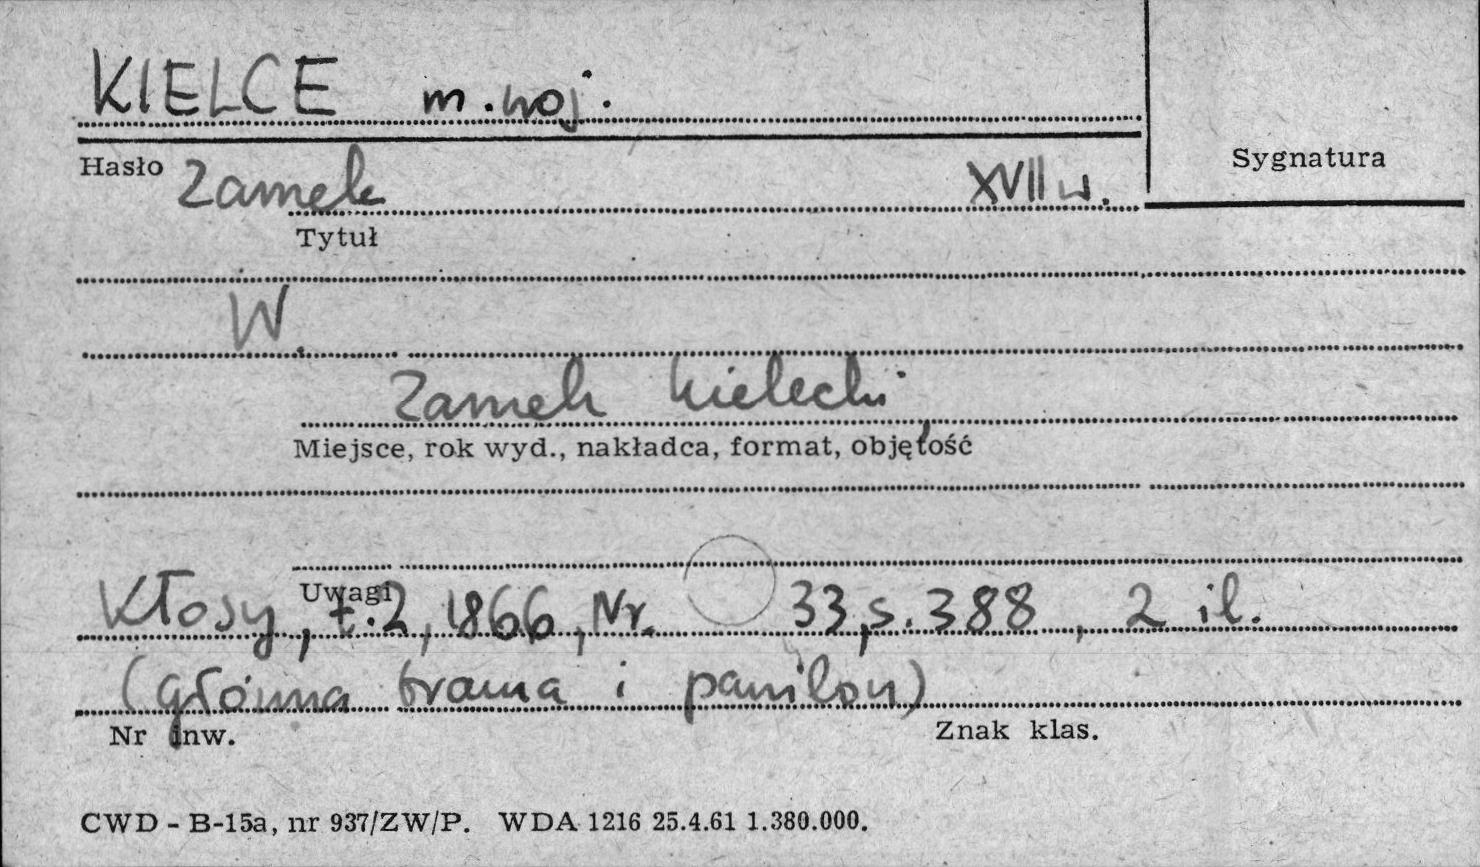 KIELCE m. woj.
Sygnatura
Hasło Zamek XVII w.
Tytuł
W.
Zamek kielecki
Miejsce, rok wyd., nakładca, format, objętość
Uwagi
Kłosy, t.2, 1866, Nr. 33, s. 388, 2 il.
(główna brama i pawilon)
Nr inw. Znak klas.
CWD - B-15a, nr 937/ZW/P. WDA 1216 25.4.61 1.380.000.